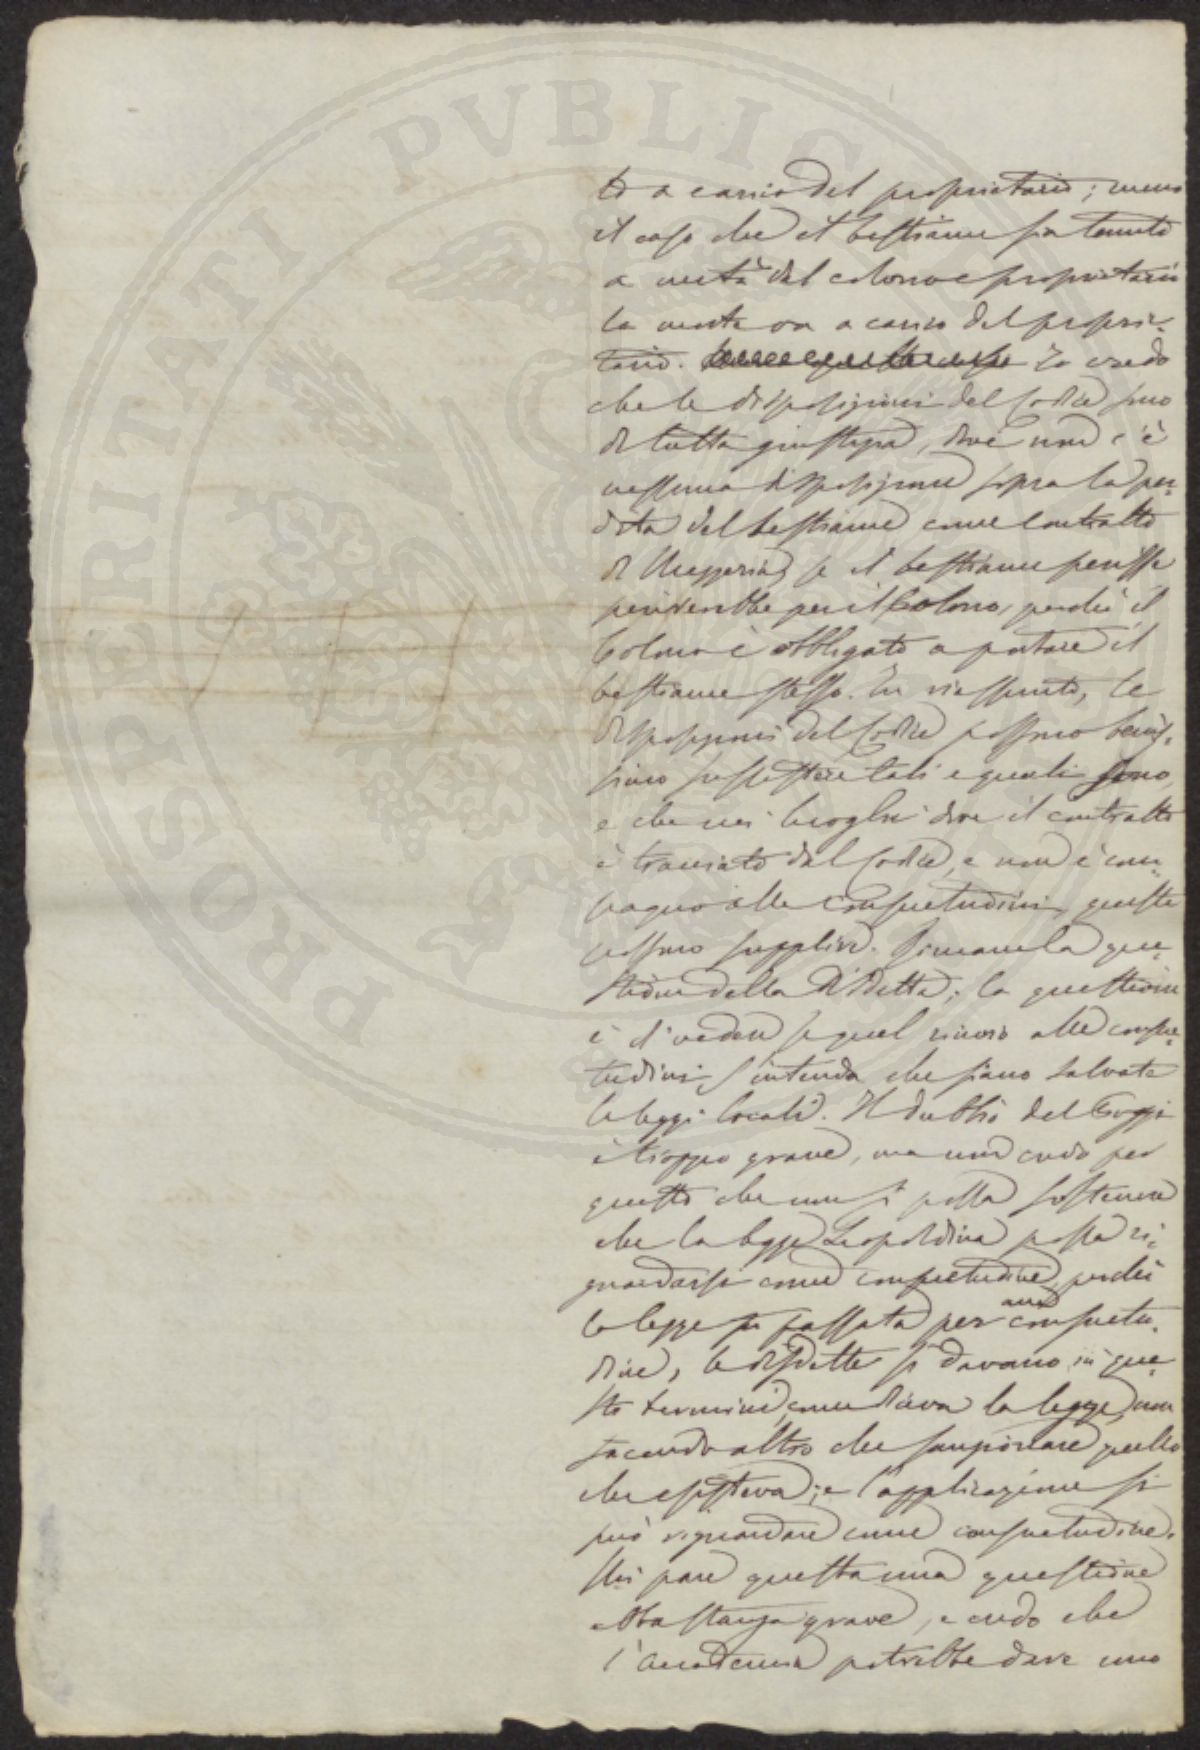 PROSPERITATI PVBLIC
to a carico del proprietario; meno
il caso che il bestiame sia tenuto
a metà dal colono e proprietario
la metà va a carico del proprie-
tario. Io credo
che le disposizioni del Codice sono
di tutta giustizia, dove non c'è
nessuna disposizione sopra la per-
dita del bestiame come contratto
di Mezzeria, se il bestiame perisse
perirebbe per il Colono, perchè il
Colono è obbligato a portare il
bestiame stesso. In riassunto, le
disposizioni del Codice possono benis-
simo sussistere tali e quali sono,
e che nei luoghi dove il contratto
è tranciato dal Codice, e non è com-
pagno alle consuetudini, queste
possono supplire. Rimane la que-
stione della Disdetta; la questione
è di vedere se quel rinvio alle consue-
tudini s'intenda che siano salvate
le leggi locali. Il dubbio del Poggi
è troppo grave, ma non credo per
questo che non si possa sostenere
che la legge Leopoldina possa ri-
guardarsi come consuetudine, perchè
la legge si passata per una consuetu-
dine, le disdette si davano in que-
sto termine, come diceva la legge, non
facendo altro che sanzionare quello
che esisteva; e l'applicazione si
può riguardare come consuetudine.
Mi pare questa una questione
abbastanza grave, e credo che
l'Accademia potrebbe dare uno